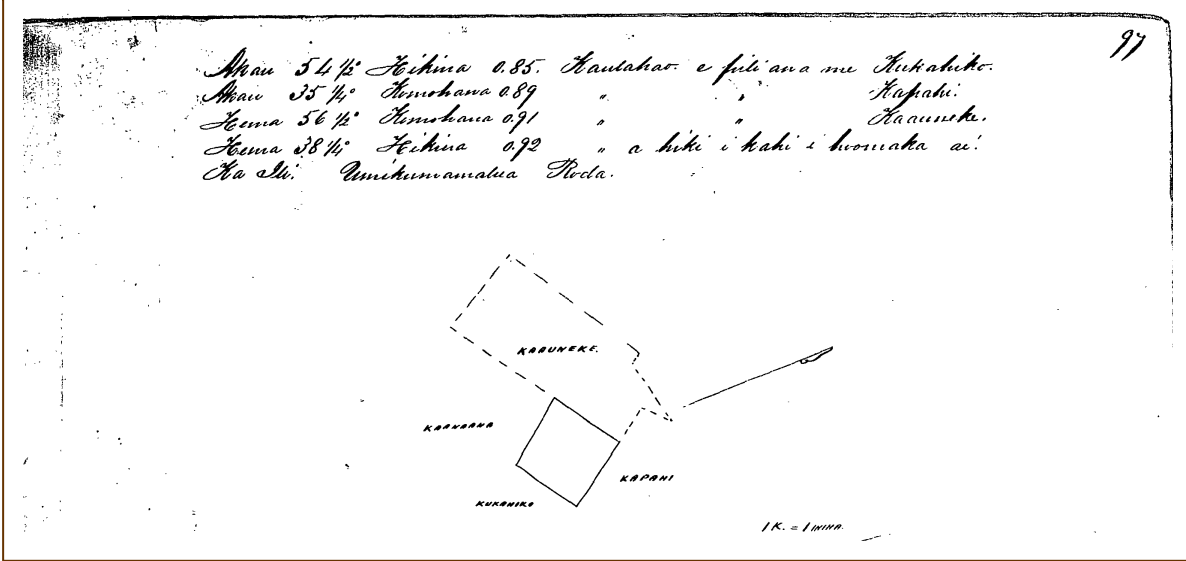 97
Akau 54 1/2° Hikina 0.85. Kaulahao. e pili ana me Kukahiko.
Akau 35 1/4° Komohana 0.89 " " Kapahi.
Hema 56 1/2° Komohana 0.91 " " Kaauneke.
Hema 38 1/4° Hikina 0.92 " a hiki i kahi i hoomaka ai.
Ka Ili. Umikumamalua Roda.
KAAUNEKE.
KAANAANA
KAPAHI
KUKAHIKO
1 K. = 1 ININA.